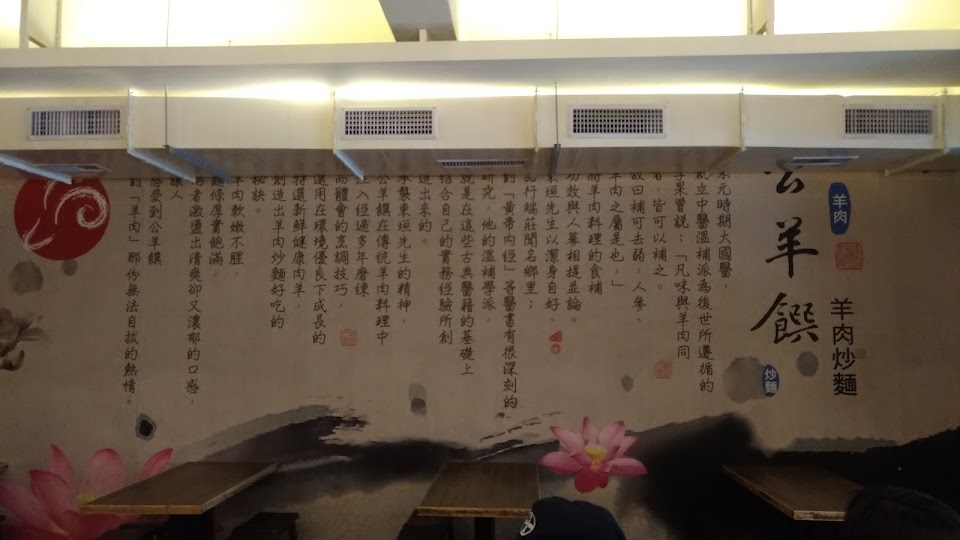 羊肉
羊肉炒麵
公羊饌
炒麵
宋元時期大國醫，
成立中醫溫補派為後世所遵循的
李杲曾說：「凡味與羊肉同
者，皆可以補之。
故曰補可去弱，人參、
羊肉之屬是也，」
將羊肉料理的食補
功效與人蔘相提並論。
東垣先生以潔身自好、
品行端莊聞名鄉里；
對「黃帝內經」等醫書有很深刻的
研究，他的溫補學派，
就是在這些古典醫籍的基礎上
結合自己的實務經驗所創
造出來的。
本襲東垣先生的精神，
公羊饌在傳統羊肉料理中
加入經過多年磨練
而體會的烹調技巧，
運用在環境優良下成長的
特選新鮮健康肉羊，
創造出羊肉炒麵好吃的
秘訣。
羊肉軟嫩不腥，
麵條厚實飽滿，
兩者激盪出清爽卻又濃郁的口感，
讓人
感受到公羊饌
對「羊肉」那份無法自拔的熱情。